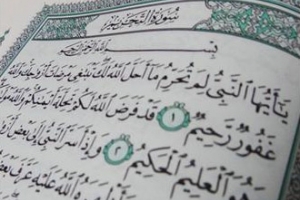 سُورَةُ التَّحْرِيمِ
بِسْمِ اللَّهِ الرَّحْمَٰنِ الرَّحِيمِ
يَٰٓأَيُّهَا ٱلنَّبِىُّ لِمَ تُحَرِّمُ مَآ أَحَلَّ ٱللَّهُ لَكَ تَبْتَغِى مَرْضَاتَ أَزْوَٰجِكَ وَٱللَّهُ
غَفُورٌ رَّحِيمٌ ١ قَدْ فَرَضَ ٱللَّهُ لَكُمْ تَحِلَّةَ أَيْمَٰنِكُمْ وَٱللَّهُ
هُوَ ٱلْعَلِيمُ ٱلْحَكِيمُ ٢ وَإِذْ أَسَرَّ ٱلنَّبِىُّ إِلَىٰ بَعْضِ
ٱللَّهُ عَلَيْهِ عَرَّفَ بَعْضَهُ